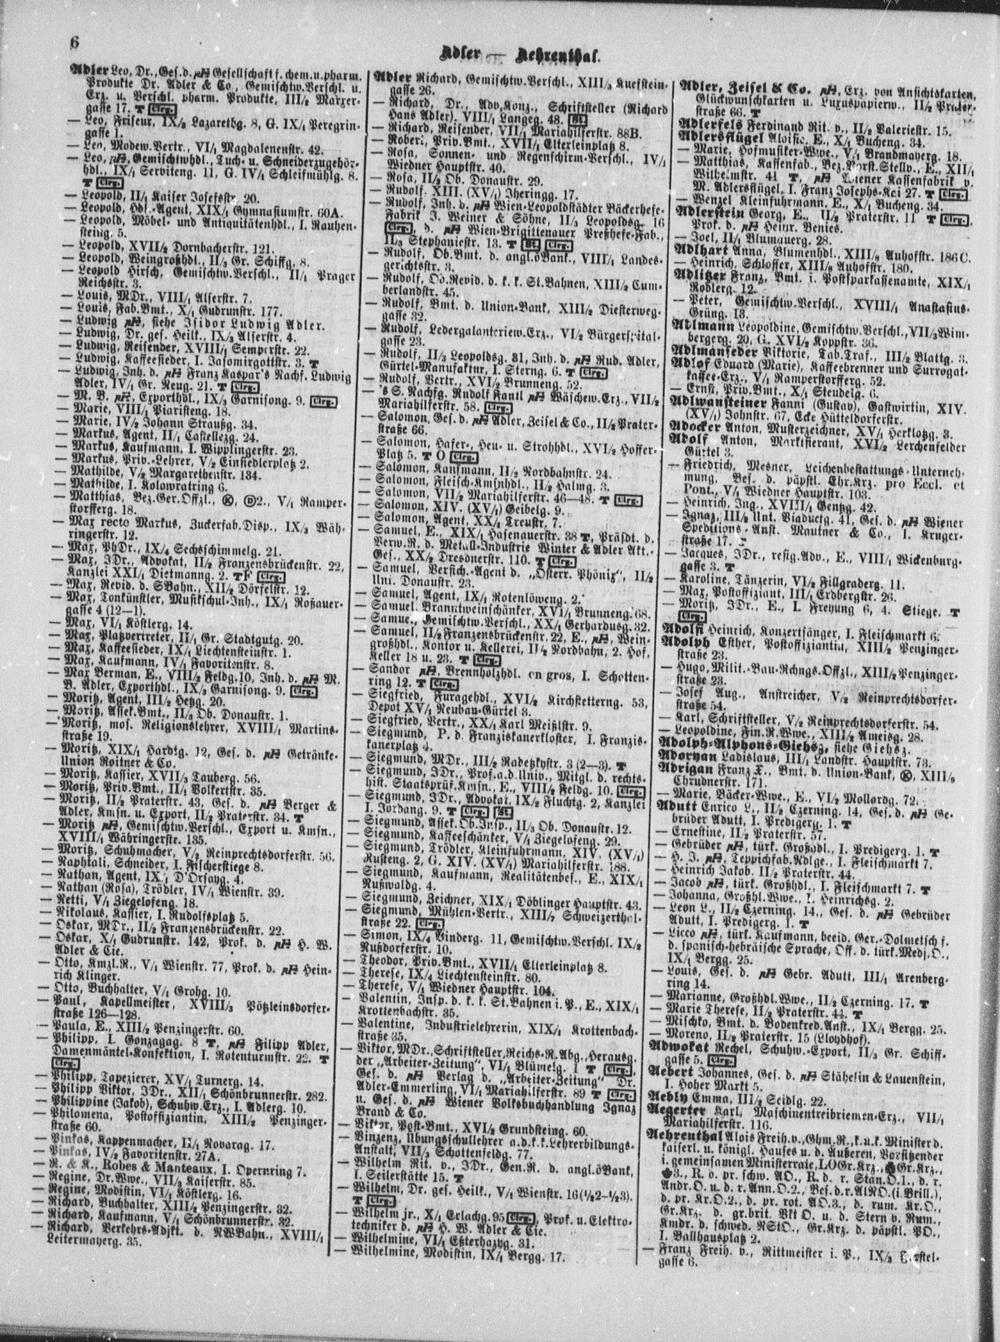 6
Adler — Aehrenthal.
Adler Leo, Dr., Ges. d. pH Gesellschaft f. chem. u. pharm.
Produkte Dr. Adler & Co., Gemischtw. Verschl. u.
Erz. u. Verschl. pharm. Produkte, III/2 Marxer-
gasse 17. T Clrg.
— Leo, Friseur, IX/2 Lazarethg. 8, G. IX/1 Peregrin-
gasse 1.
— Leo, Modew. Vertr., VI/1 Magdalenenstr. 42.
— Leo, pH, Gemischtwhdl., Tuch- u. Schneiderzugehör-
hdl., IX/2 Serviteng. 11, G. IV/1 Schleifmühlg. 8.
T Clrg.
— Leopold, II/1 Kaiser Josefstr. 20.
— Leopold, Hds.-Agent, XIX/1 Gymnasiumstr. 60A.
— Leopold, Möbel- und Antiquitätenhdl., I. Rauhen-
steing. 5.
— Leopold, XVII/2 Dornbacherstr. 121.
— Leopold, Weingroßhdl., II/1 Gr. Schiffg. 8.
— Leopold Hirsch, Gemischtw. Verschl., II/1 Prager
Reichsstr. 3.
— Louis, MDr., VIII/1 Alserstr. 7.
— Louis, Fab. Bmt., X/1 Gudrunstr. 177.
— Ludwig pH, siehe Isidor Ludwig Adler.
— Ludwig, Dr. ges. Heilk., IX/3 Alserstr. 4.
— Ludwig, Reisender, XVIII/1 Semperstr. 22.
— Ludwig, Kaffeesieder, I. Jasomirgottstr. 3. T
— Ludwig, Inh. d. pH Franz Kaspar's Nachf. Ludwig
Adler, IV/1 Gr. Neug. 21. T Clrg.
— M. B. pH, Exporthdl., IX/3 Garnisong. 9. Clrg.
— Marie, VIII/1 Piaristeng. 18.
— Marie, IV/2 Johann Straußg. 34.
— Markus, Agent, II/1 Castellezg. 24.
— Markus, Kaufmann, I. Wipplingerstr. 23.
— Markus, Priv.-Lehrer, V/2 Einsiedlerplatz 2.
— Mathilde, V/2 Margarethenstr. 134.
— Mathilde, I. Kolowratring 6.
— Matthias, Bez. Ger. Offzl., V/1 Ramper-
storfferg. 18.
— Max recto Markus, Zuckerfab. Disp., IX/3 Wäh-
ringerstr. 12.
— Max, PhDr., IX/4 Sechsschimmelg. 21.
— Max, JDr., Advokat, II/2 Franzensbrückenstr. 22,
Kanzlei XXI/1 Dietmanng. 2. TF Clrg.
— Max, Revid. d. SBahn, XII/2 Dörfelstr. 12.
— Max, Tonkünstler, Musikschul-Inh., IX/1 Roßauer-
gasse 4 (12—1).
— Max, VI/1 Köstlerg. 14.
— Max, Platzvertreter, II/1 Gr. Stadtgutg. 20.
— Max, Kaffeesieder, IX/1 Liechtensteinstr. 1.
— Max, Kaufmann, IV/1 Favoritenstr. 8.
— Max Berman, E., VIII/2 Feldg. 10, Inh. d. pH M.
B. Adler, Exporthdl., IX/3 Garnisong. 9. Clrg.
— Moritz, Agent, III/2 Hetzg. 20.
— Moritz, Assek. Bmt., II/3 Ob. Donaustr. 1.
— Moritz, mos. Religionslehrer, XVIII/1 Martins-
straße 19.
— Moritz, XIX/1 Hardtg. 12, Ges. d. pH Getränke-
Union Roitner & Co.
— Moritz, Kassier, XVII/3 Tauberg. 56.
— Moritz, Priv. Bmt., II/1 Volkertstr. 35.
— Moritz, II/2 Praterstr. 43, Ges. d. pH Berger &
Adler, Kmsn. u. Export, II/2 Praterstr. 34. T
— Moritz pH, Gemischtw. Verschl., Export u. Kmsn.,
XVIII/1 Währingerstr. 135.
— Moritz, Schuhmacher, V/2 Reinprechtsdorferstr. 56.
— Naphtali, Schneider, I. Fischerstiege 8.
— Nathan, Agent, IX/1 D'Orsayg. 4.
— Nathan (Rosa), Trödler, IV/1 Wienstr. 39.
— Netti, V/1 Ziegelofeng. 18.
— Nikolaus, Kassier, I. Rudolfsplatz 5.
— Oskar, MDr., II/2 Franzensbrückenstr. 22.
— Oskar, X/1 Gudrunstr. 142, Prok. d. pH H. W.
Adler & Cie.
— Otto, Knzl. R., V/1 Wienstr. 77, Prok. d. pH Hein-
rich Klinger.
— Otto, Buchhalter, V/1 Grohg. 10.
— Paul, Kapellmeister, XVIII/3 Pötzleinsdorfer-
straße 126—128.
— Paula, E., XIII/2 Penzingerstr. 60.
— Philipp, I. Gonzagag. 8 T, pH Filipp Adler,
Damenmäntel-Konfektion, I. Rotenturmstr. 22. T
Clrg.
— Philipp, Tapezierer, XV/1 Turnerg. 14.
— Philipp Viktor, JDr., XII/1 Schönbrunnerstr. 282.
— Philippine (Jakob), Schuhw. Erz., I. Adlerg. 10.
— Philomena, Postoffiziantin, XIII/2 Penzinger-
straße 60.
— Pinkas, Kappenmacher, II/1 Novarag. 17.
— Pinkas, IV/2 Favoritenstr. 27A.
— R. & K., Robes & Manteaux, I. Opernring 7.
— Regine, Dr. Wwe., VII/3 Kaiserstr. 85.
— Regine, Modistin, VI/1 Köstlerg. 16.
— Richard, Buchhalter, XIII/2 Penzingerstr. 32.
— Richard, Kaufmann, V/1 Schönbrunnerstr. 32.
— Richard, Verkehrs-Adjkt. d. NWBahn, XVIII/1
Leitermayerg. 35.
Adler Richard, Gemischtw. Verschl., XIII/3 Kuefstein-
gasse 26.
— Richard, Dr., Adv. Konz., Schriftsteller (Richard
Hans Adler), VIII/1 Langeg. 48. St
— Richard, Reisender, VII/2 Mariahilferstr. 88B.
— Robert, Priv. Bmt., XVII/1 Elterleinplatz 8.
— Rosa, Sonnen- und Regenschirm-Verschl., IV/1
Wiedner Hauptstr. 40.
— Rosa, II/3 Ob. Donaustr. 29.
— Rudolf, XIII. (XV/1) Jheringg. 17.
— Rudolf, Inh. d. pH Wien-Leopoldstädter Bäckerhefe-
Fabrik J. Weiner & Söhne, II/1 Leopoldsg. 16
Clrg., d. pH Wien-Brigittenauer Preßhefe-Fab.,
II/3 Stephaniestr. 13. T St Clrg.
— Rudolf, Ob. Bmt. d. angl. öBank, VIII/1 Landes-
gerichtsstr. 3.
— Rudolf, Oö. Revid. d. k. k. St. Bahnen, XIII/2 Cum-
berlandstr. 45.
— Rudolf, Bmt. d. Union-Bank, XIII/2 Diesterweg-
gasse 32.
— Rudolf, Ledergalanteriew. Erz., VI/2 Bürgerspital-
gasse 23.
— Rudolf, II/3 Leopoldsg. 31, Inh. d. pH Rud. Adler,
Gürtel-Manufaktur, I. Sterng. 6. T Clrg.
— Rudolf, Vertr., XVI/2 Brunneng. 52.
— 's S. Nachfg. Rudolf Kantl pH Wäschew. Erz., VII/2
Mariahilferstr. 58. Clrg.
— Salomon, Ges. d. pH Adler, Zeisel & Co., II/2 Prater-
straße 66.
— Salomon, Hafer-, Heu- u. Strohhdl., XVI/2 Hoffer-
Platz 5. T O Clrg.
— Salomon, Kaufmann, II/2 Nordbahnstr. 24.
— Salomon, Fleisch-Kmsnhdl., II/2 Halmg. 3.
— Salomon, VII/2 Mariahilferstr. 46—48. T Clrg.
— Salomon, XIV. (XV/1) Geibelg. 9.
— Salomon, Agent, XX/2 Treustr. 7.
— Samuel, E., XIX/1 Hasenauerstr. 38 T, Präsdt. d.
Verw. R. d. Metall-Industrie Winter & Adler Akt.-
Ges., XX/2 Dresdnerstr. 110. T Clrg.
— Samuel, Versich.-Agent d. „Österr. Phönix“, II/2
Unt. Donaustr. 23.
— Samuel, Agent, IX/1 Rotenlöweng. 2.
— Samuel, Branntweinschänker, XVI/1 Brunneng. 68.
— Samuel, Gemischtw. Verschl., XX/1 Gerhardusg. 32.
— Samuel, II/2 Franzensbrückenstr. 22, E., pH, Wein-
großhdl., Kontor u. Kellerei, II/2 Nordbahn, 2. Hof,
Keller 18 u. 23. T Clrg.
— Sandor pH, Brennholzhdl. en gros, I. Schotten-
ring 12. T Clrg.
— Siegfried, Furagehdl., XVI/2 Kirchstetterng. 53,
Depot XV/1 Neubau-Gürtel 8.
— Siegfried, Vertr., XX/1 Karl Meißlstr. 9.
— Siegmund, P. d. Franziskanerkloster, I. Franzis-
kanerplatz 4.
— Siegmund, MDr., III/2 Radetzkystr. 3 (2—3). T
— Siegmund, JDr., Prof. a. d. Univ., Mitgl. d. rechts-
hist. Staatsprüf. Kmsn., E., VIII/2 Feldg. 10. Clrg.
— Siegmund, JDr., Advokat, IX/2 Fluchtg. 2, Kanzlei
I. Jordang. 9. T Clrg. St.
— Siegmund, Assek. Ob. Insp., II/3 Ob. Donaustr. 12.
— Siegmund, Kaffeeschänker, V/1 Ziegelofeng. 29.
— Siegmund, Trödler, Kleinfuhrmann, XIV. (XV/1)
Rusteng. 2, G. XIV. (XV/1) Mariahilferstr. 188.
— Siegmund, Kaufmann, Realitätenbes., E., XIX/1
Nußwaldg. 4.
— Siegmund, Zeichner, XIX/1 Döblinger Hauptstr. 43.
— Siegmund, Mühlen-Vertr., XIII/2 Schweizerthal-
straße 22. Clrg.
— Simon, IX/4 Binderg. 11, Gemischtw. Verschl. IX/2
Nußdorferstr. 10.
— Theodor, Priv. Bmt., XVII/1 Elterleinplatz 8.
— Therese, IX/4 Liechtensteinstr. 80.
— Therese, V/1 Wiedner Hauptstr. 104.
— Valentin, Insp. d. k. k. St. Bahnen i. P., E., XIX/1
Krottenbachstr. 35.
— Valentine, Industrielehrerin, XIX/1 Krottenbach-
straße 35.
— Viktor, MDr., Schriftsteller, Reichs-R. Abg., Herausg.
der „Arbeiter-Zeitung“, VI/1 Blümelg. 1 T Clrg.,
Ges. d. pH Verlag d. „Arbeiter-Zeitung“ Dr.
Adler-Emmerling, VI/1 Mariahilferstr. 89 T Clrg.
u. Ges. d. pH Wiener Volksbuchhandlung Ignaz
Brand & Co.
— Viktor, Post-Bmt., XVI/2 Grundsteing. 60.
— Vinzenz, Übungsschullehrer a. d. k. k. Lehrerbildungs-
Anstalt, VII/3 Schottenfeldg. 77.
— Wilhelm Rit. v., JDr., Gen. R. d. angl. öBank,
I. Seilerstätte 15. T
— Wilhelm, Dr. ges. Heilk., V/1 Wienstr. 16 (1/2 2—1/2 3).
T Clrg.
— Wilhelm jr., X/1 Erlachg. 95 Clrg., Prok. u. Elektro-
techniker d. pH H. W. Adler & Cie.
— Wilhelmine, VI/1 Eßterhazyg. 31.
— Wilhelmine, Modistin, IX/1 Bergg. 17.
Adler, Zeisel & Co. pH, Erz. von Ansichtskarten,
Glückwunschkarten u. Luxuspapierw., II/2 Prater-
straße 66. T
Adlersfels Ferdinand Rit. v., II/2 Valeriestr. 15.
Adlersflügel Aloisie, E., X/1 Bucheng. 34.
— Marie, Hofmusiker-Wwe., V/1 Brandmayerg. 18.
— Matthias, Kassenfab., Bez. Vorst. Stellv., E., XII/1
Wilhelmstr. 41 T, pH Wiener Kassenfabrik v.
M. Adlersflügel, I. Franz Josephs-Kai 27. T Clrg.
— Wenzel Kleinfuhrmann, E., X/1 Bucheng. 34.
Adlerstein Georg, E., II/2 Praterstr. 11 T Clrg.,
Prok. d. pH Heinr. Benies.
— Joel, II/1 Blumauerg. 28.
Adlhart Anna, Blumenhdl., XIII/3 Auhofstr. 186C.
— Heinrich, Schlosser, XIII/3 Auhofstr. 180.
Adlitzer Franz, Bmt. i. Postsparkassenamte, XIX/1
Rodlerg. 12.
— Peter, Gemischtw. Verschl., XVIII/1 Anastasius-
Grüng. 18.
Adlmann Leopoldine, Gemischtw. Verschl., VII/3 Wim-
bergerg. 20, G. XVI/2 Koppstr. 36.
Adlmanseder Viktorie, Tab. Traf., III/2 Blattg. 3.
Adlof Eduard (Marie), Kaffeebrenner und Surrogat-
kaffee-Erz., V/1 Ramperstorfferg. 52.
— Ernst, Priv. Bmt., X/1 Steudelg. 6.
Adlwansteiner Fanni (Gustav), Gastwirtin, XIV.
(XV/1) Johnstr. 67, Ecke Hütteldorferstr.
Adocker Anton, Musterzeichner, XV/1 Herklotzg. 3.
Adolf Anton, Markthelfer, XVI/2 Lerchenfelder
Gürtel 3.
— Friedrich, Mesner, Leichenbestattungs-Unterneh-
mung, Bes. d. päpstl. Ehr. Kr. pro Eccl. et
Pont., V/1 Wiedner Hauptstr. 103.
— Heinrich, Ing., XVIII/1 Gentzg. 42.
— Ignaz, III/2 Unt. Viaduktg. 41, Ges. d. pH Wiener
Speditions-Anst. Mautner & Co., I. Kruger-
straße 17.
— Jacques, JDr., restg. Adv., E., VIII/1 Wickenburg-
gasse 3. T
— Karoline, Tänzerin, VI/2 Fillgraderg. 11.
— Max, Postoffiziant, III/2 Erdbergstr. 26.
— Moritz, JDr., E., I. Freyung 6, 4. Stiege. T
Clrg.
Adolfi Heinrich, Konzertsänger, I. Fleischmarkt 6.
Adolph Esther, Postoffiziantin, XIII/2 Penzinger-
straße 23.
— Hugo, Milit.-Bau-Rchngs. Offzl., XIII/2 Penzinger-
straße 23.
— Josef Aug., Anstreicher, V/2 Reinprechtsdorfer-
straße 54.
— Karl, Schriftsteller, V/2 Reinprechtsdorferstr. 54.
— Leopoldine, Fin. R. Wwe., XIII/2 Ameisg. 28.
Adolph-Alphons-Giehsz, siehe Giehsz.
Adoryan Ladislaus, III/1 Landstr. Hauptstr. 73.
Adrigan Franz X., Bmt. d. Union-Bank, XIII/2
Chrudnerstr. 171.
— Marie, Bäcker-Wwe., E., VI/2 Mollardg. 72.
Adutt Enrico L., II/2 Czerning. 14, Ges. d. pH Ge-
brüder Adutt, I. Predigerg. 1. T
— Ernestine, II/2 Praterstr. 57.
— Gebrüder pH, türk. Großhdl., I. Predigerg. 1. T
— H. J. pH, Teppichfab. Ndlge., I. Fleischmarkt 7.
— Heinrich Jakob, II/2 Praterstr. 44.
— Jacob pH, türk. Großhdl., I. Fleischmarkt 7. T
— Johanna, Großhl. Wwe., I. Heinrichsg. 2.
— Leon L., II/2 Czerning. 14, Ges. d. pH Gebrüder
Adutt, I. Predigerg. 1. T
— Licco pH, türk. Kaufmann, beeid. Ger.-Dolmetsch f.
d. spanisch-hebräische Sprache, Off. d. türk. Medj. O.,
IX/1 Bergg. 25.
— Louis, Ges. d. pH Gebr. Adutt, III/1 Arenberg-
ring 14.
— Marianne, Großhdl. Wwe., II/2 Czerning. 17. T
— Marie Therese, II/2 Praterstr. 44. T
— Mischko, Bmt. d. Bodenkred. Anst., IX/1 Bergg. 25.
— Moreno, II/2 Praterstr. 15 (Lloydhof).
Adwokat Rechel, Schuhw.-Export, II/3 Gr. Schiff-
gasse 5. Clrg.
Aebert Johannes, Ges. d. pH Stähelin & Lauenstein,
I. Hoher Markt 5.
Aebly Emma, III/2 Seidlg. 22.
Aegerter Karl, Maschinentreibriemen-Erz., VII/1
Mariahilferstr. 116.
Aehrenthal Alois Freih. v., Ghm. R., k. u. k. Minister d.
kaiserl. u. königl. Hauses u. d. Äußeren, Vorsitzender
i. gemeinsamen Ministerrate, LO Gr. Krz., Gr. Krz.,
3., R. o. pr. schw. AO., R. d. r. Stan. O. 1., d. r.
Andr. O. u. d. r. Ann. O. 2., Bes. d. r. AlNO. (i. Brill.),
d. pr. Kr. O. 2., d. pr. rot. AO. 3., d. rum. Kr. O.,
Gr. Krz. d. gr. brit. Vkt O. u. d. Stern v. Rum.,
Kmdr. d. schwed. NStO., Gr. Krz. d. päpstl. PO.,
I. Ballhausplatz 2.
— Franz Freih. v., Rittmeister i. P., IX/3
gasse 6.